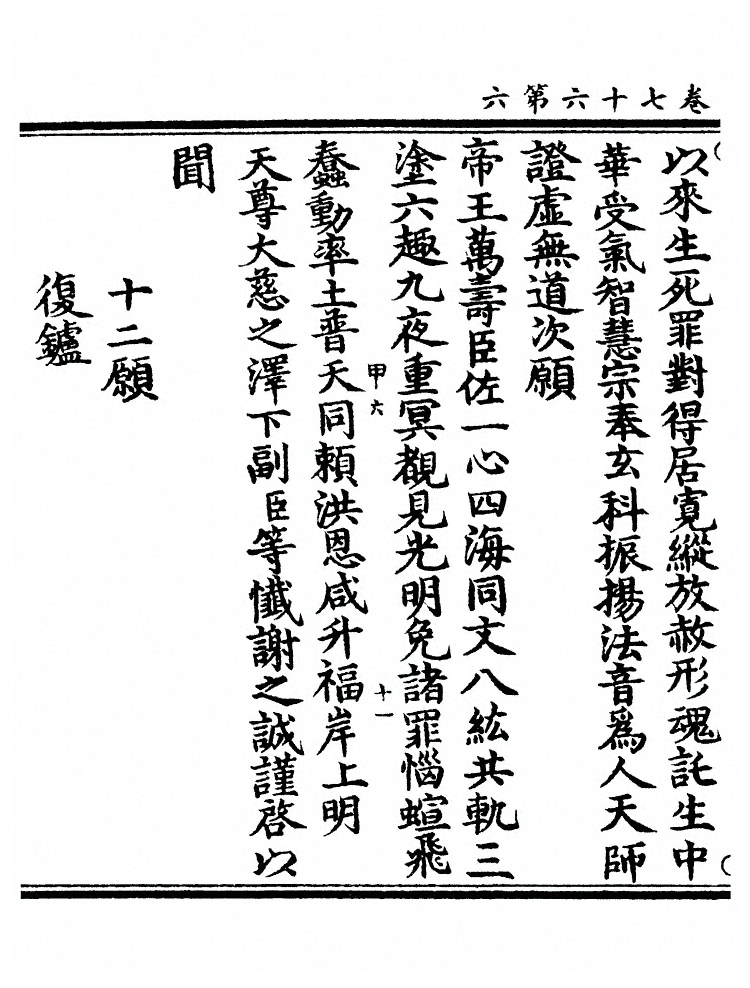 卷七十六第六
以來生死罪對得居寬縱放赦形魂託生中
華受氣智慧宗奉玄科振揚法音爲人天師
證虛無道次願
帝王萬壽臣佐一心四海同文八紘共軌三
塗六趣九夜重冥覩見光明免諸罪惱蝖飛
甲六
十一
蠢動率土普天同賴洪恩咸升福岸上明
天尊大慈之澤下副臣等懺謝之誠謹啓以
聞
十二願
復鑪